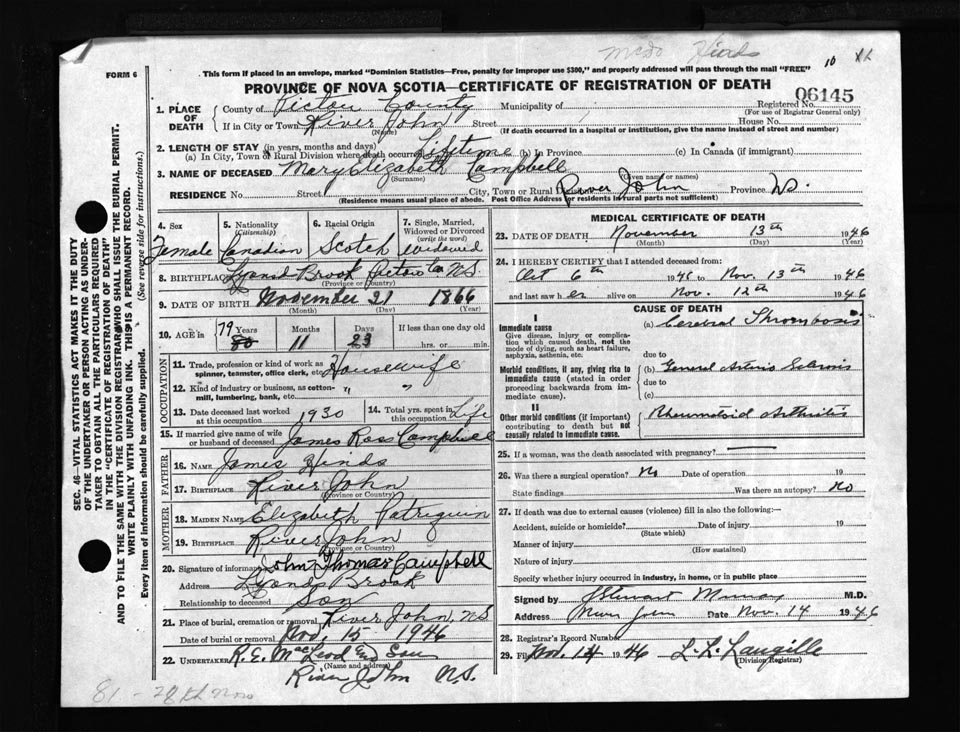 10
FORM 6
This form if placed in an envelope, marked "Dominion Statistics—Free, penalty for improper use $300," and properly addressed will pass through the mail "FREE"
PROVINCE OF NOVA SCOTIA—CERTIFICATE OF REGISTRATION OF DEATH
06145
Registered No.
(For use of Registrar General only)
1. PLACE OF DEATH
County of Pictou County
Municipality of
If in City or Town River John Street House No.
(Name)
(If death occurred in a hospital or institution, give the name instead of street and number)
2. LENGTH OF STAY (in years, months and days)
(a) In City, Town or Rural Division where death occurred Lifetime (b) In Province (c) In Canada (if immigrant)
3. NAME OF DECEASED Mary Elizabeth Campbell
(Surname) (Given name or names)
RESIDENCE No. Street City, Town or Rural River John Province N.S.
(Residence means usual place of abode. Post Office Address for residents in rural parts not sufficient)
4. Sex Female
5. Nationality (Citizenship) Canadian
6. Racial Origin Scotch
7. Single, Married, Widowed or Divorced (write the word) Widowed
8. BIRTHPLACE Lyons Brook Pictou Co N.S.
(Province or Country)
9. DATE OF BIRTH November 21 1866
(Month) (Day) (Year)
10. AGE in 79 80 Years 11 Months 23 Days If less than one day old hrs. or min.
11. Trade, profession or kind of work as spinner, teamster, office clerk, etc. Housewife
12. Kind of industry or business, as cotton-mill, lumbering, bank, etc. " "
13. Date deceased last worked at this occupation 1930
14. Total yrs. spent in this occupation Life
15. If married give name of wife or husband of deceased James Ross Campbell
FATHER
16. NAME James Hinds
17. BIRTHPLACE River John
(Province or Country)
MOTHER
18. MAIDEN NAME Elizabeth Patriquin
19. BIRTHPLACE River John
(Province or Country)
20. Signature of informant John Thomas Campbell
Address Lyons Brook
Relationship to deceased Son
21. Place of burial, cremation or removal River John, N.S
Date of burial or removal Nov. 15 1946
22. UNDERTAKER R. E. MacLeod and Son
(Name and address)
River John N.S.
MEDICAL CERTIFICATE OF DEATH
23. DATE OF DEATH November 13th 1946
(Month) (Day) (Year)
24. I HEREBY CERTIFY that I attended deceased from:
Oct 6th 1945 to Nov. 13th 1946
and last saw her alive on Nov. 12th 1946
CAUSE OF DEATH
I
Immediate cause
Give disease, injury or complication which caused death, not the mode of dying, such as heart failure, asphyxia, asthenia, etc.
(a) Cerebral Thrombosis
due to
Morbid conditions, if any, giving rise to immediate cause (stated in order proceeding backwards from immediate cause).
(b) General Arterio Sclerosis
due to
(c)
II
Other morbid conditions (if important) contributing to death but not causally related to immediate cause.
Rheumatoid Arthritis
25. If a woman, was the death associated with pregnancy?
26. Was there a surgical operation? No Date of operation 19
State findings Was there an autopsy? No
27. If death was due to external causes (violence) fill in also the following:—
Accident, suicide or homicide? Date of injury 19
(State which)
Manner of injury
(How sustained)
Nature of injury
Specify whether injury occurred in industry, in home, or in public place
Signed by J Stewart Murray M.D.
Address River John Date Nov. 14 1946
28. Registrar's Record Number
29. Filed Nov. 14 1946 L. L. Langille
(Division Registrar)
SEC. 46—VITAL STATISTICS ACT MAKES IT THE DUTY
OF THE UNDERTAKER OR PERSON ACTING AS UNDER-
TAKER TO OBTAIN ALL THE PARTICULARS REQUIRED
IN THE "CERTIFICATE OF REGISTRATION OF DEATH"
AND TO FILE THE SAME WITH THE DIVISION REGISTRAR WHO SHALL ISSUE THE BURIAL PERMIT.
WRITE PLAINLY WITH UNFADING INK. THIS IS A PERMANENT RECORD.
Every item of information should be carefully supplied. (See reverse side for instructions.)
81 - 28th Nov